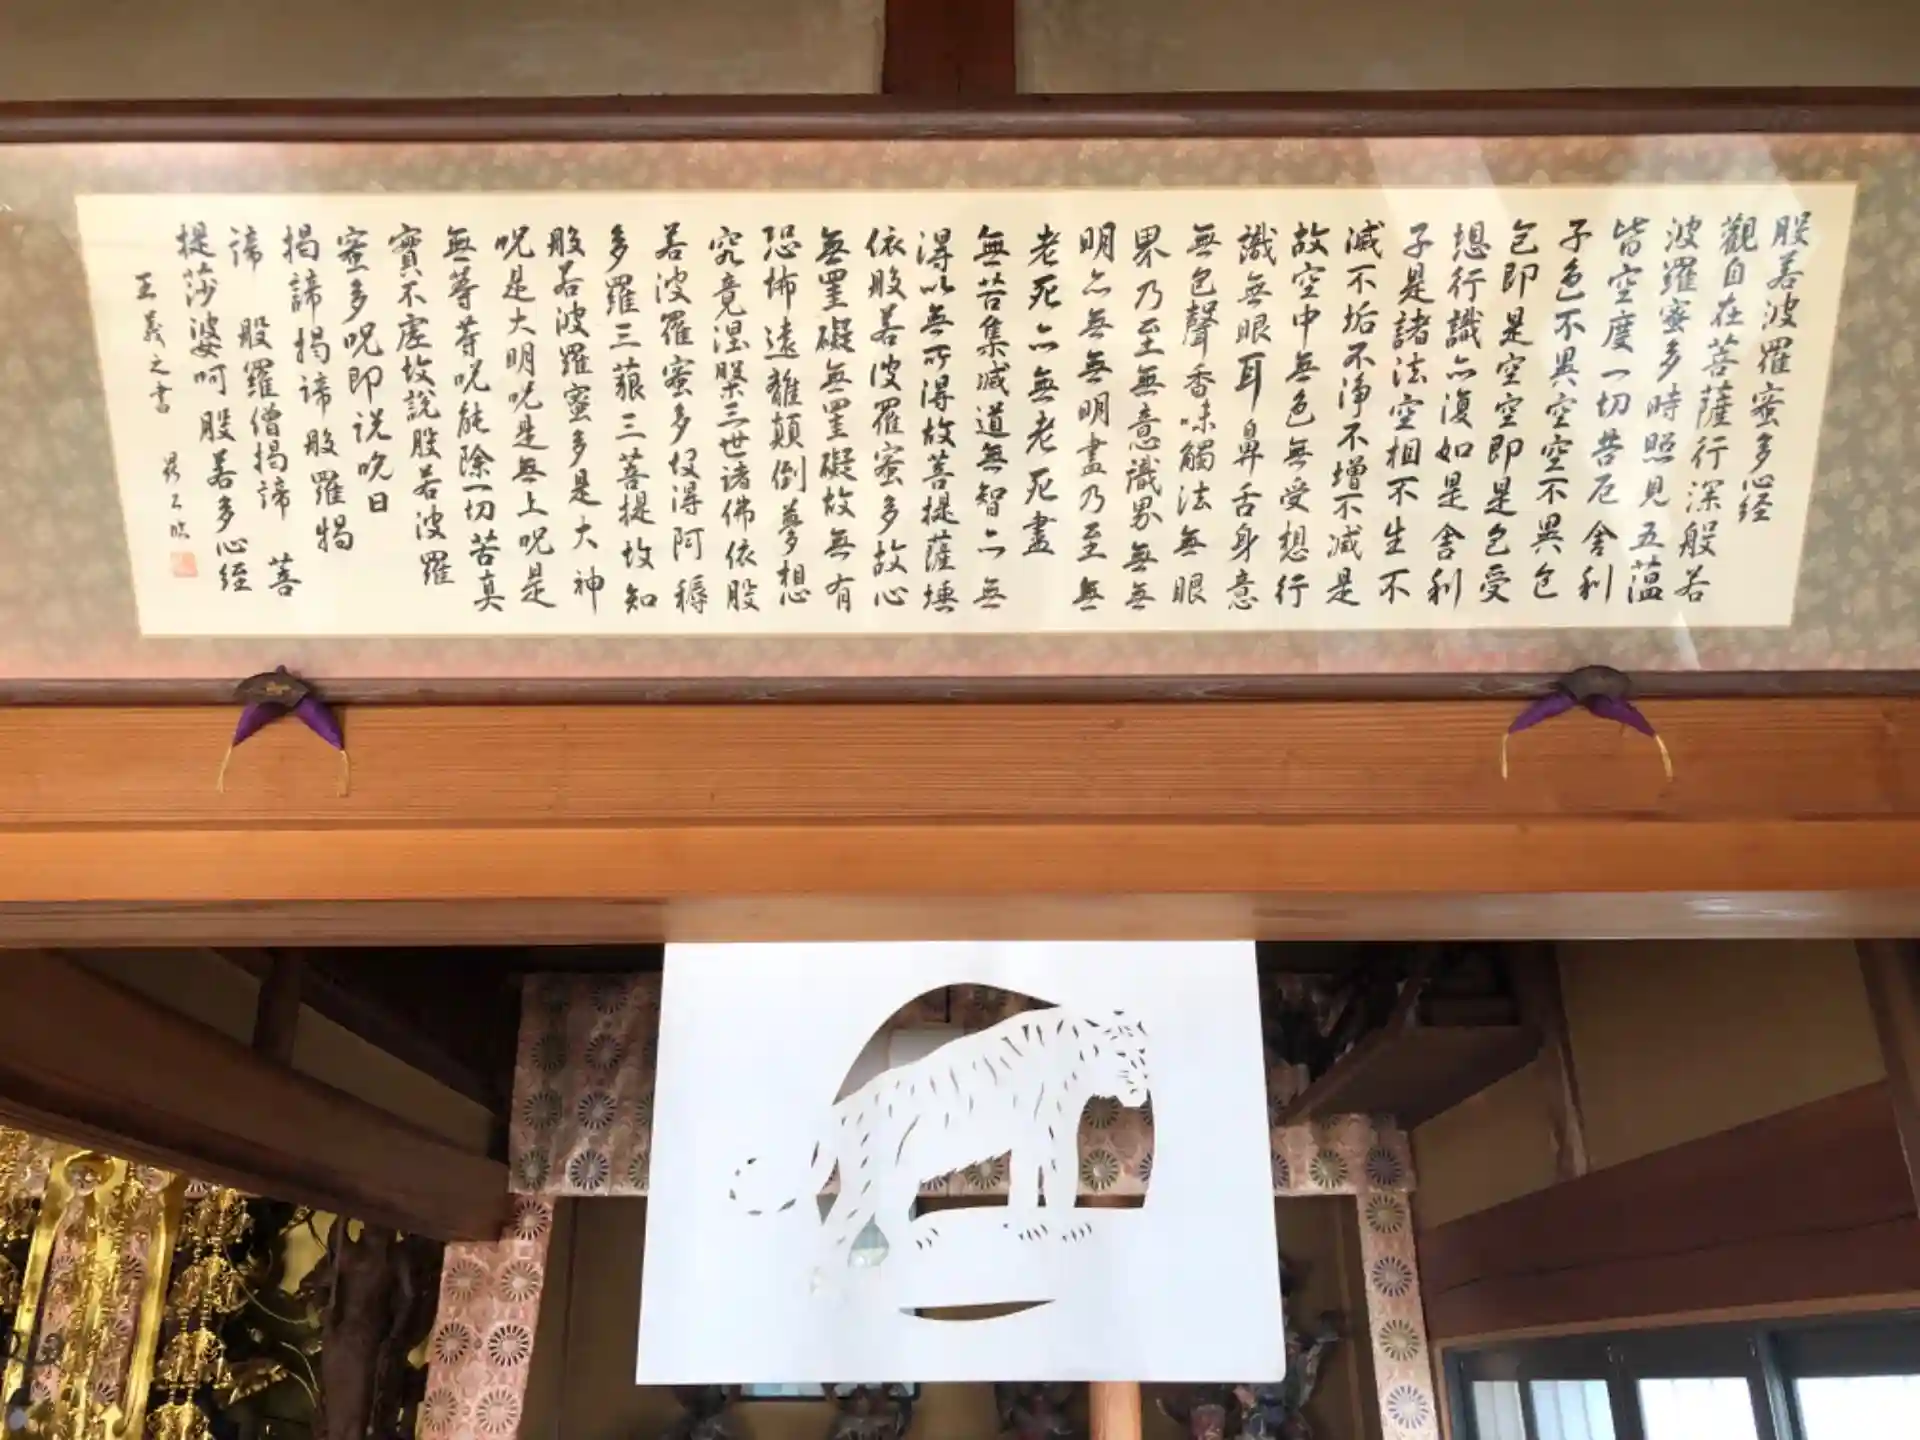 般若波羅蜜多心経
觀自在菩薩行深般若
波羅蜜多時照見五蕴
皆空度一切苦厄舎利
子色不異空空不異色
色即是空空即是色受
想行識亦復如是舎利
子是諸法空相不生不
滅不垢不浄不增不減是
故空中無色無受想行
識無眼耳鼻舌身意
無色聲香味觸法無眼
界乃至無意識界無無
明亦無無明盡乃至無
老死亦無老死盡
無苦集滅道無智亦無
得以無所得故菩提薩埵
依般若波羅蜜多故心
無罣礙無罣礙故無有
恐怖遠離顛倒夢想
究竟涅槃三世諸佛依般
若波羅蜜多故得阿耨
多羅三藐三菩提故知
般若波羅蜜多是大神
呪是大明呪是無上呪是
無等等呪能除一切苦真
實不虚故說般若波羅
蜜多呪即説呪曰
揭諦揭諦般羅揭
諦 般羅僧揭諦 菩
提莎婆呵 般若多心経
王羲之書